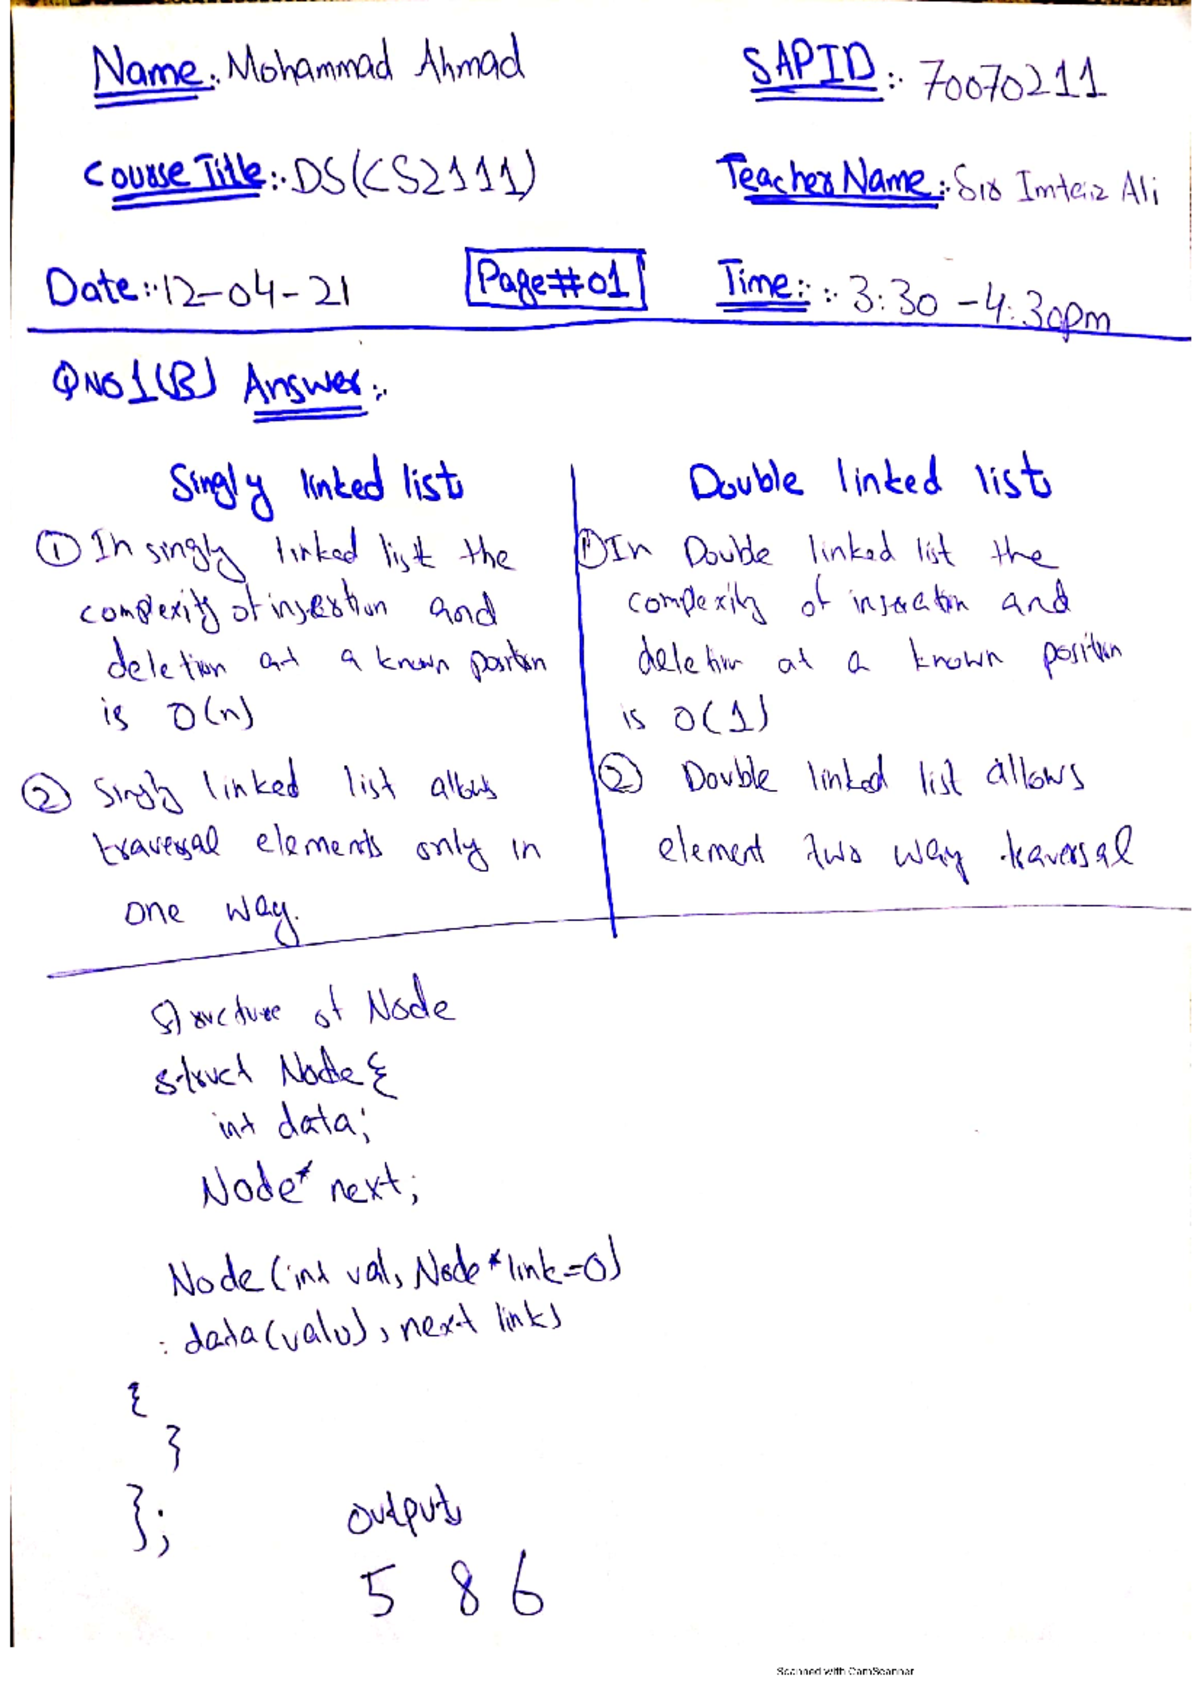 Name:. Mohammad Ahmad
SAPID:. 70070211
Course Title:. DS(CS2111)
Teacher Name:. Sir Imteiz Ali
Date:. 12-04-21
Page#01
Time:. :. 3:30 - 4:30pm
QNo1(B) Answer:.
Singly linked list
① In singly linked list the
complexity of insertion and
deletion at a known position
is O(n)
② Singly linked list allows
traversal elements only in
one way.
Double linked list
① In Double linked list the
complexity of insertion and
deletion at a known position
is O(1)
② Double linked list allows
element two way traversal
Structure of Node
struct Node {
int data;
Node* next;
Node (int val, Node* link=0)
: data(valu), next link)
{
}
};
Output
5 8 6
Scanned with CamScanner